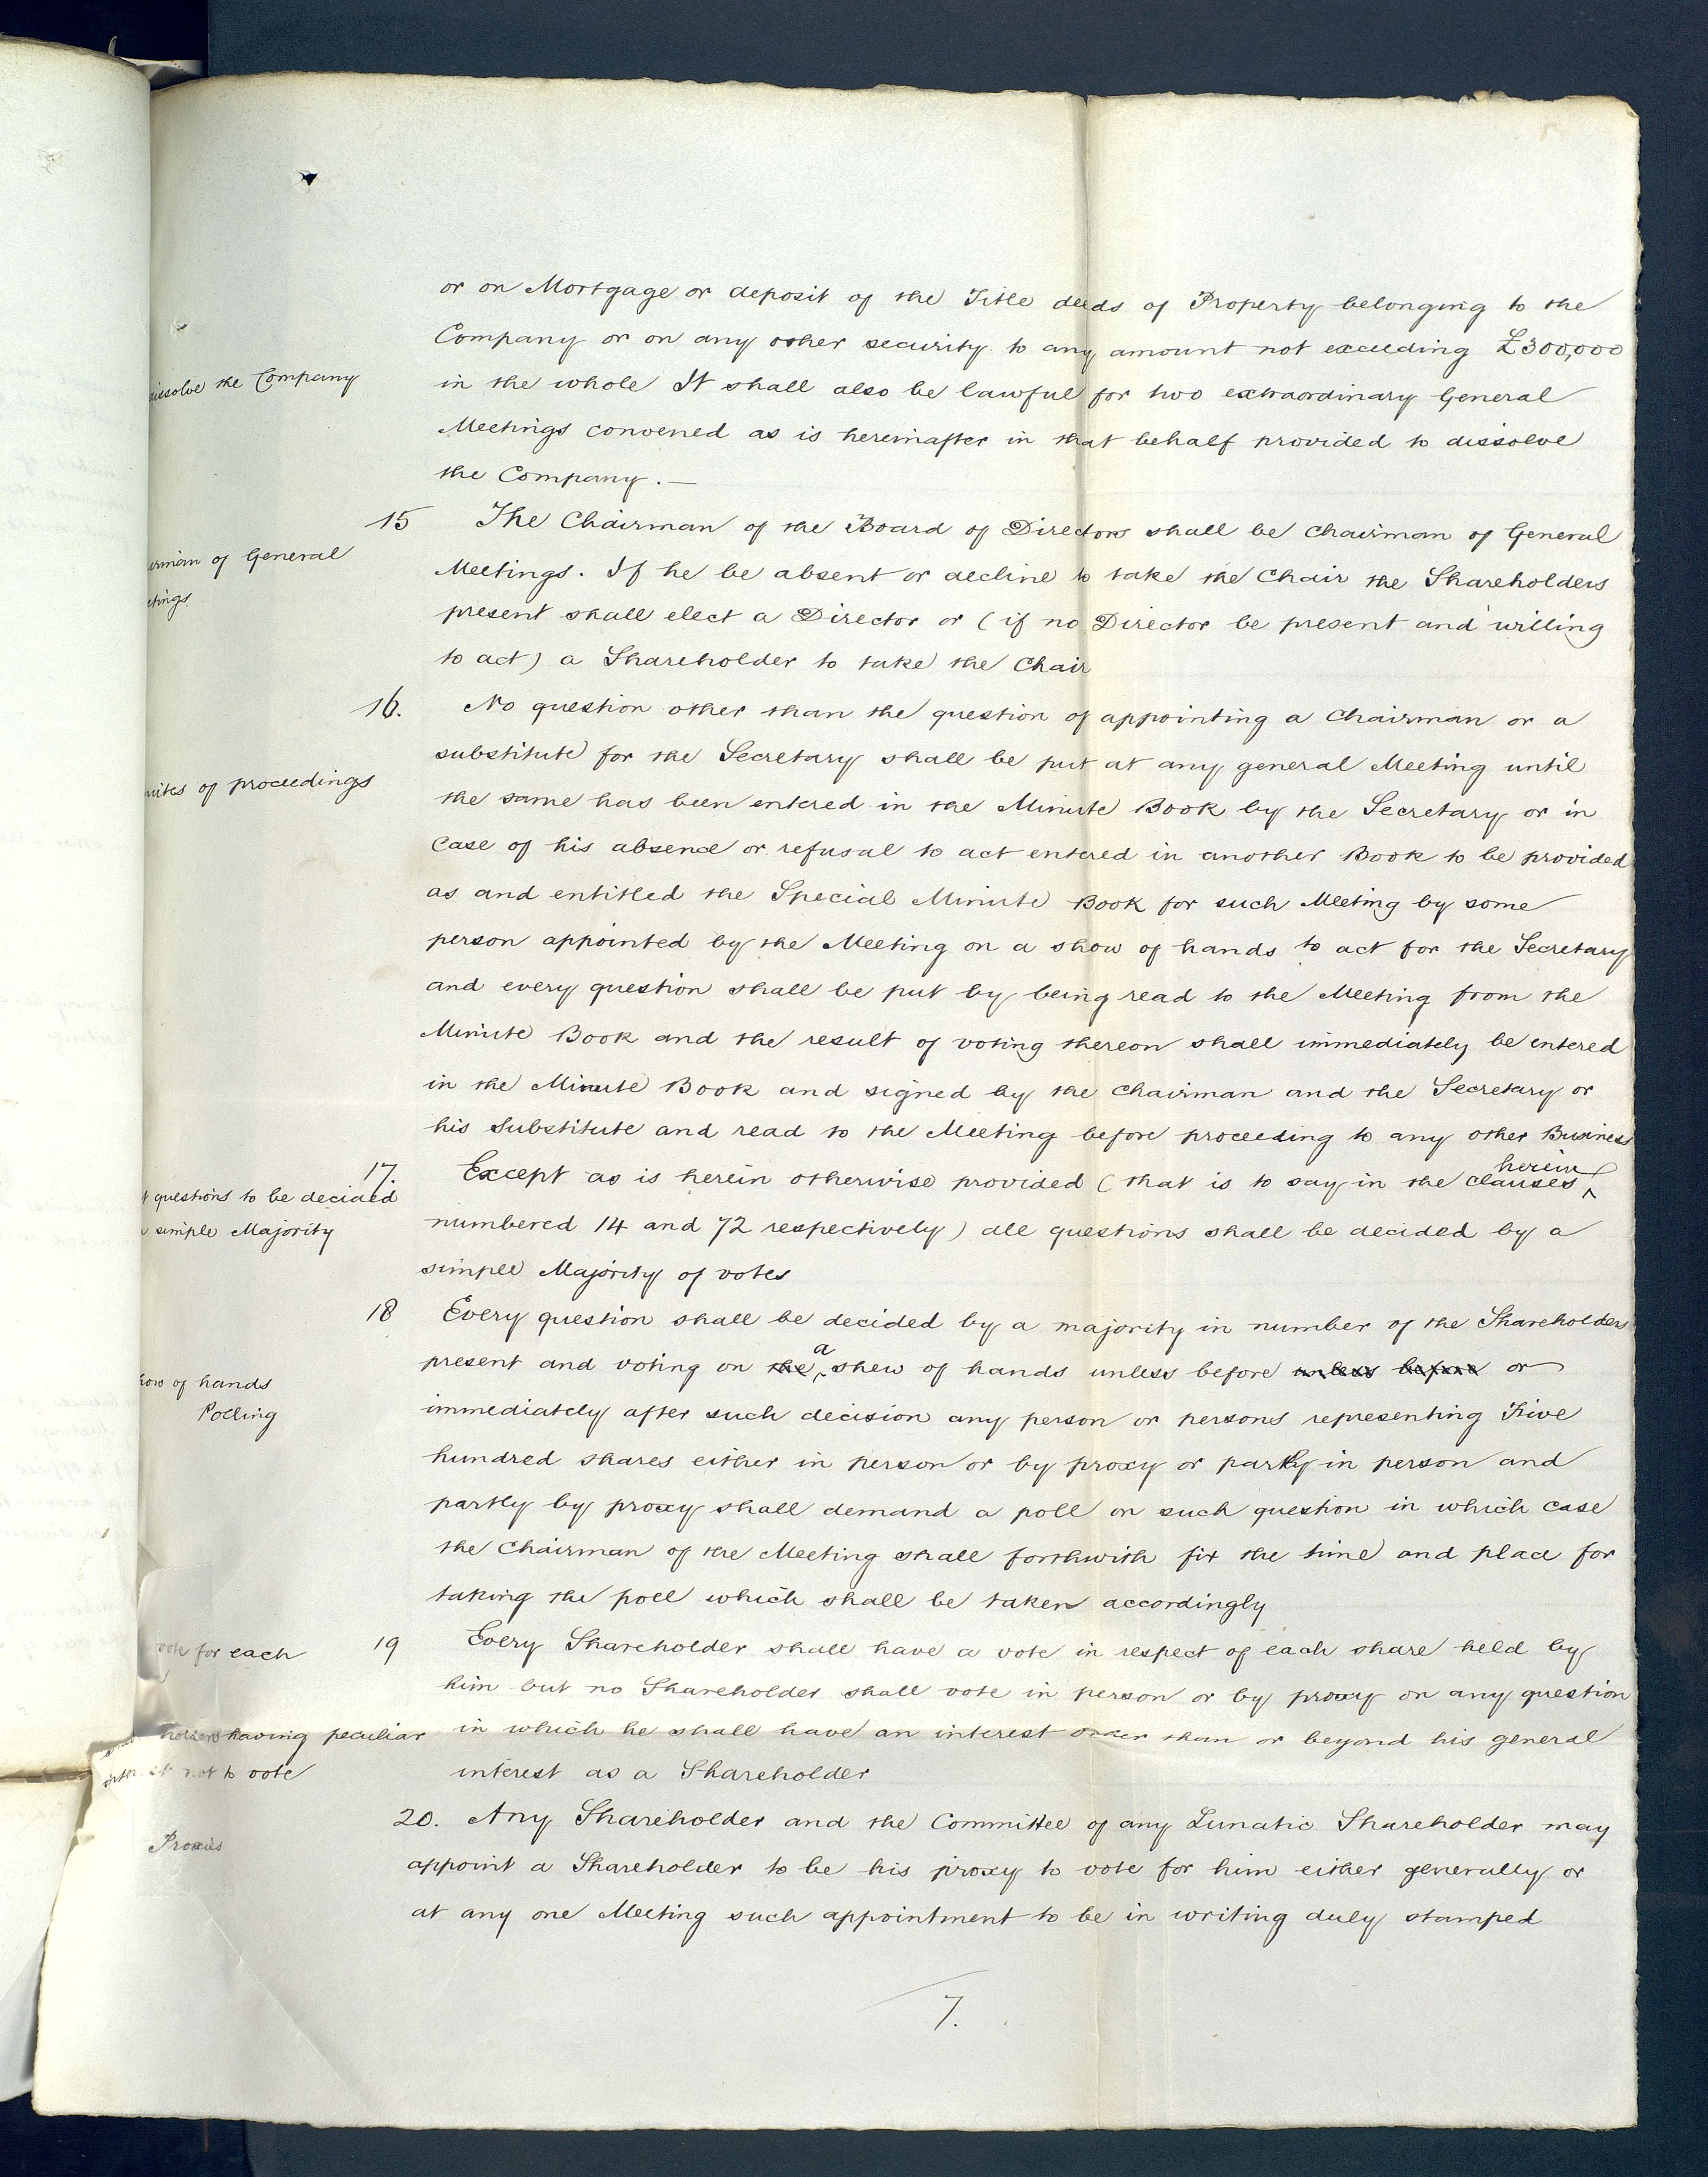 or on Mortgage or deposit of the Title deeds of Property belonging to the
Company or on any other security to any amount not exceeding £300,000
dissolve the Company
in the whole It shall also be lawful for two extraordinary General
Meetings convened as is hereinafter in that behalf provided to dissolve
the Company. —
15 The Chairman of the Board of Directors shall be Chairman of General
irman of General
Meetings. If he be absent or decline to take the Chair the Shareholders
etings
present shall elect a Director or (if no Director be present and willing
to act) a Shareholder to take the Chair
16. No question other than the question of appointing a Chairman or a
substitute for the Secretary shall be put at any general Meeting until
nutes of proceedings
the same has been entered in the Minute Book by the Secretary or in
Case of his absence or refusal to act entered in another Book to be provided
as and entitled the Special Minute Book for such Meeting by some
person appointed by the Meeting on a show of hands to act for the Secretary
and every question shall be put by being read to the Meeting from the
Minute Book and the result of voting thereon shall immediately be entered
in the Minute Book and signed by the Chairman and the Secretary or
his Substitute and read to the Meeting before proceeding to any other Business
17. Except as is herein otherwise provided (that is to say in the clauses herein
questions to be decided
simple Majority
numbered 14 and 72 respectively) all questions shall be decided by a
simple Majority of votes
18 Every question shall be decided by a majority in number of the Shareholders
present and voting on the a shew of hands unless before unless before or
how of hands
Polling
immediately after such decision any person or persons representing Five
hundred shares either in person or by proxy or partly in person and
partly by proxy shall demand a poll on such question in which case
the Chairman of the Meeting shall forthwith fix the time and place for
taking the poll which shall be taken accordingly
vote for each
19 Every Shareholder shall have a vote in respect of each share held by
him but no Shareholder shall vote in person or by proxy on any question
holders having peculiar
in which he shall have an interest other than or beyond his general
not to vote
interest as a Shareholder
20. Any Shareholder and the Committee of any Lunatic Shareholder may
Proxies
appoint a Shareholder to be his proxy to vote for him either generally or
at any one Meeting such appointment to be in writing duly stamped
7.